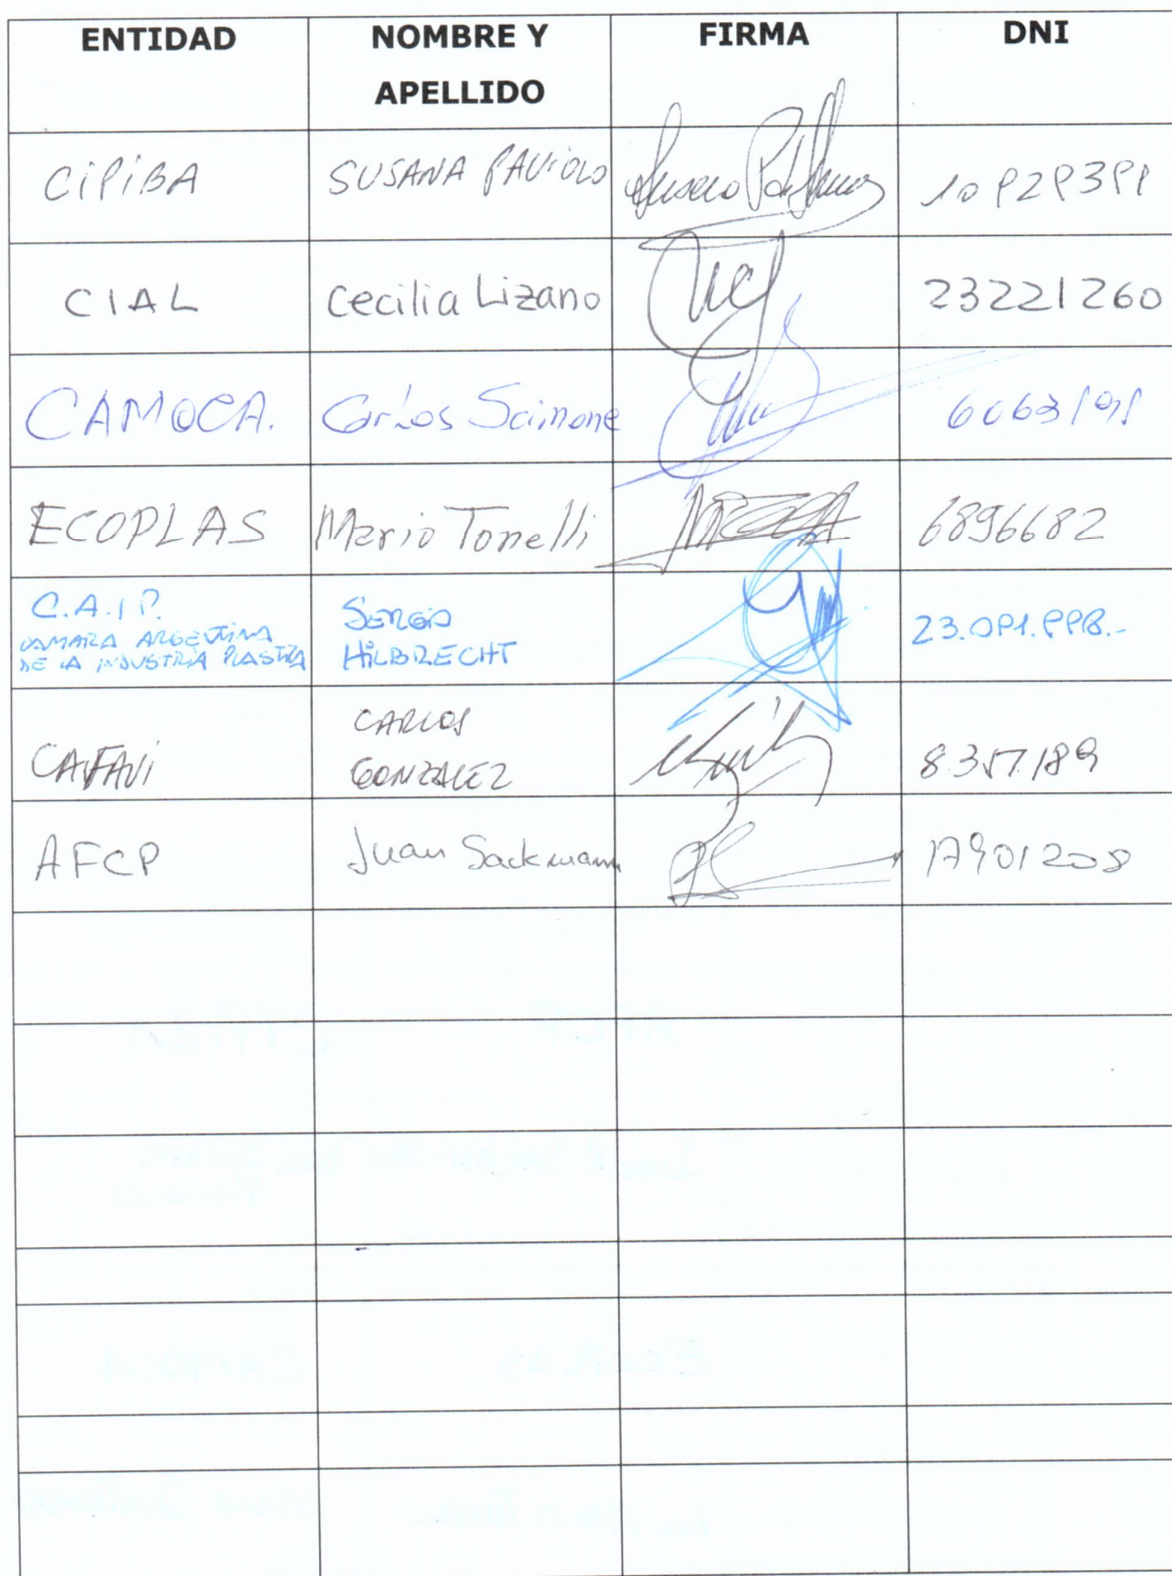 ENTIDAD NOMBRE Y APELLIDO FIRMA DNI
CIPIBA SUSANA PAVIOLO
CIAL Cecilia Lizano 23221260
CAMOCA. Carlos Scimone
ECOPLAS Mario Tonelli 6896682
C.A.I.P. CAMARA ARGENTINA DE LA INDUSTRIA PLASTICA SERGIO HILBRECHT
CAFAVI CARLOS GONZALEZ 8.357.189
AFCP Juan Sackmann 17901208